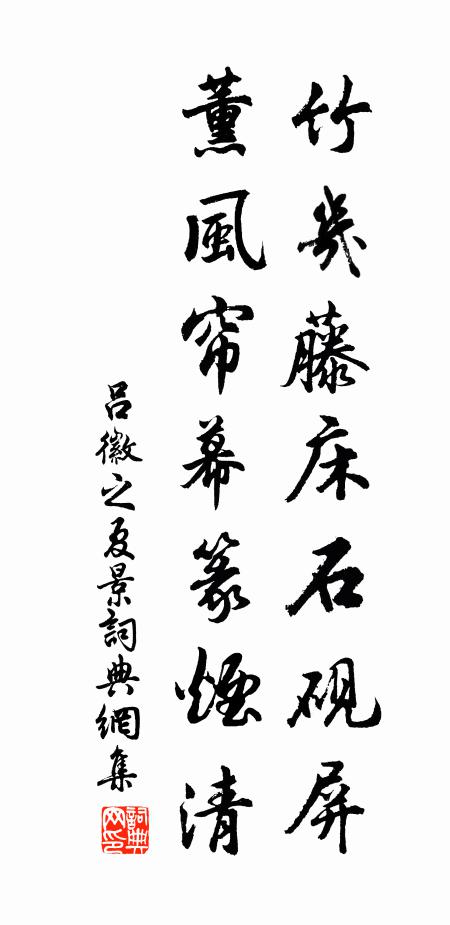 竹幾藤床石硯屏
薰風帘幕篆煙清
吕徽之夏景詞典網集
詞典网印